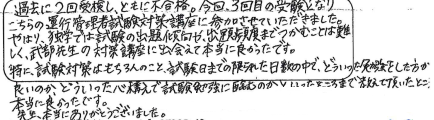 過去に2回受検し、ともに不合格。今回、3回目の受験となり
こちらの運行管理者試験対策講座に参加させていただきました。
やはり、独学では試験の出題傾向や、出題頻度までつかむことは難
しく、武部先生の対策講座に出会えて本当に良かったです。
特に、試験対策はもちろんのこと、試験日までの限られた日数の中で、どういった勉強をした方が
良いのか、どういった心構えで試験勉強に臨むのかといったところまで教えて頂いたこと
本当に良かったです。
先生、本当にありがとうございました。